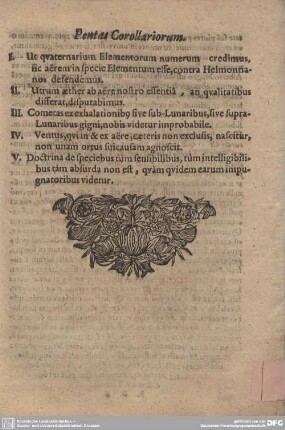 Pentas Corollariorum.
I. Ut qvaternarium Elementorum numerum credimus,
sic aërem in specie Elementum esse, contra Helmontia-
nos defendemus.
II. Utrum æther ab aëre nostro essentiâ, an qualitatibus
differat, disputabimus.
III. Cometas ex exhalationibꝯ sive sub-Lunaribus, sive supra-
Lunaribus gigni, nobis videtur improbabile.
IV. Ventus, qvi in & ex aëre, cæteris non exclusis, nascitur,
non unam ortus sui causam agnoscit.
V. Doctrina de speciebus tùm sensibilibus, tùm intelligibili-
bus tàm absurda non est, qvàm qvidem earum impu-
gnatoribus videtur.
DFG